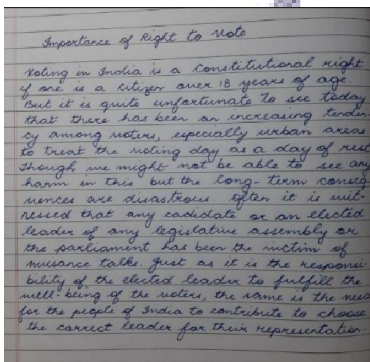 Importance of Right to Vote
Voting in India is a Constitutional right
if one is a citizen over 18 years of age.
But it is quite unfortunate to see today
that there has been an increasing tenden-
cy among voters, especially urban areas
to treat the voting day as a day of rest
Though we might not be able to see any
harm in this but the long-term conseq
uences are disastrous. often it is wit-
nessed that any cadidate or an elected
leader of any legislative assembly or
the parliament has been the victim of
nuisance talks. Just as it is the responsi-
bility of the elected leader to fulfill the
well-being of the voters, the same is the need
for the people of India to contribute to choose
the correct leader for their representation.